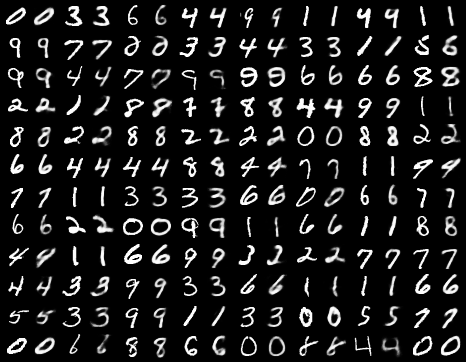 0 0 3 3 6 6 4 4 9 9 1 1 4 4 1 1
9 9 7 7 2 2 3 3 4 4 3 3 1 1
9 9 4 4 7 7 9 9 9 9 6 6 6 6 8 8
2 2 1 1 8 8 7 7 8 8 4 4 9 9 1 1
8 8 2 2 8 8 2 2 2 2 0 0 8 8 2 2
6 6 4 4 4 4 8 8 4 4 7 7 1 1 9 9
7 7 1 1 3 3 3 3 6 6 0 0 6 6 7 7
6 6 2 2 0 0 9 9 1 1 6 6 1 1 8 8
4 4 1 1 6 6 9 9 3 3 2 2 7 7 7 7
4 4 3 3 9 9 3 3 6 6 1 1 1 1 6 6
5 5 3 3 9 9 1 1 3 3 0 0 5 5 7 7
0 0 6 6 8 8 6 6 0 0 8 8 4 4 0 0